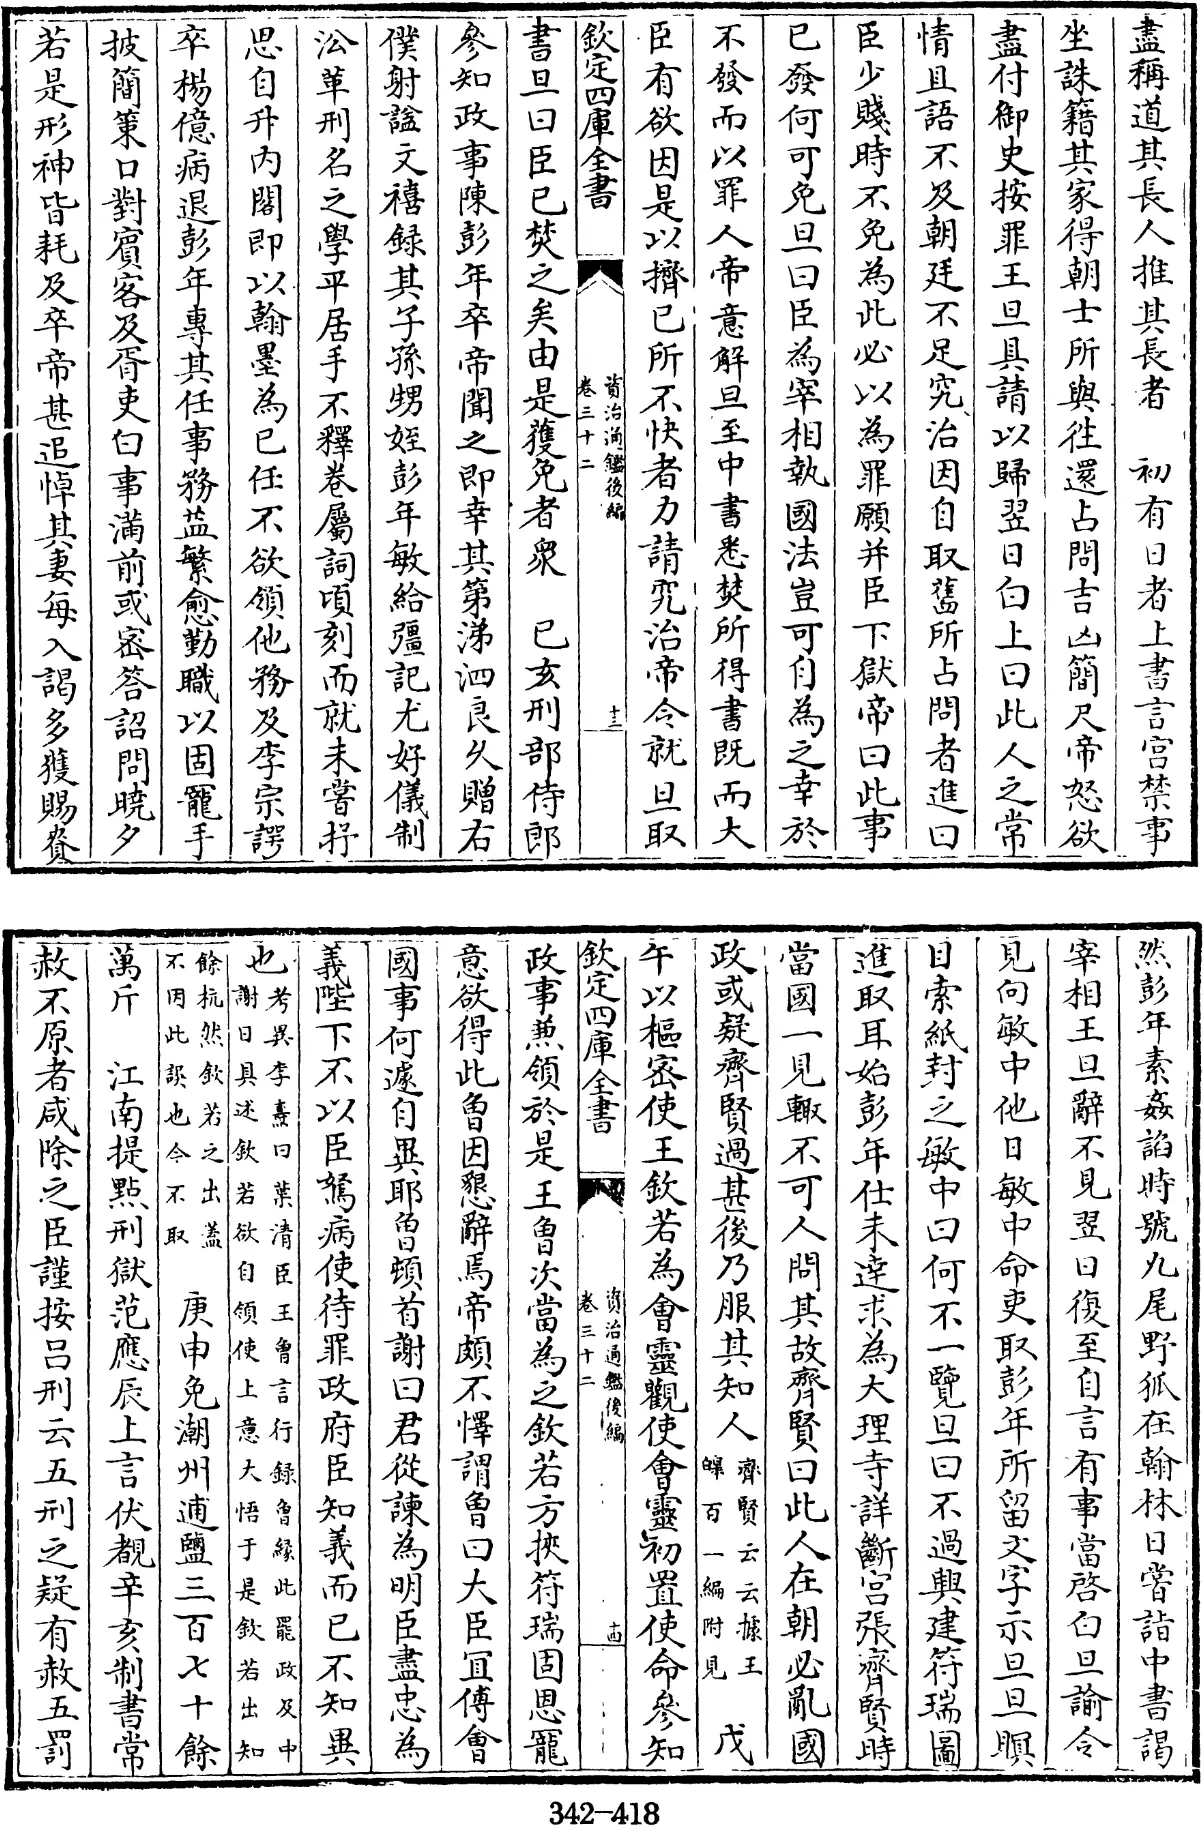 盡稱道其長人推其長者　初有日者上書言宫禁事
坐誅籍其家得朝士所與往還占問吉凶簡尺帝怒欲
盡付御史按罪王旦具請以歸翌日白上曰此人之常
情且語不及朝廷不足究治因自取舊所占問者進曰
臣少賤時不免為此必以為罪願并臣下獄帝曰此事
已發何可免旦曰臣為宰相執國法豈可自為之幸於
不發而以罪人帝意解旦至中書悉焚所得書既而大
臣有欲因是以擠已所不快者力請究治帝令就旦取
欽定四庫全書　資治通鑑後編卷三十二　十三
書旦曰臣已焚之矣由是獲免者衆　已亥刑部侍郎
參知政事陳彭年卒帝聞之即幸其第涕泗良久贈右
僕射謚文禧録其子孫甥姪彭年敏給彊記尤好儀制
沿革刑名之學平居手不釋卷屬詞頃刻而就未嘗抒
思自升内閣即以翰墨為已任不欲領他務及李宗諤
卒楊億病退彭年專其任事務益繁愈勤職以固寵手
披簡策口對賓客及胥吏白事滿前或密答詔問曉夕
若是形神皆耗及卒帝甚追悼其妻每入謁多獲賜賚
然彭年素姦諂時號九尾野狐在翰林日嘗詣中書謁
宰相王旦辭不見翌日復至自言有事當啓白旦諭令
見向敏中他日敏中命吏取彭年所留文字示旦旦瞑
目索紙封之敏中曰何不一覽旦曰不過興建符瑞圖
進取耳始彭年仕未達求為大理寺詳斷官張齊賢時
當國一見輙不可人問其故齊賢曰此人在朝必亂國
政或疑齊賢過甚後乃服其知人齊賢云云據王皥百一編附見　戊
午以樞密使王欽若為會靈觀使會靈初置使命參知
欽定四庫全書　資治通鑑後編卷三十二　十四
政事兼領於是王魯次當為之欽若方挾符瑞固恩寵
意欲得此魯因懇辭焉帝頗不懌謂魯曰大臣宜傅會
國事何遽自異耶魯頓首謝曰君從諫為明臣盡忠為
義陛下不以臣駑病使待罪政府臣知義而已不知異
也考異李燾曰葉清臣王魯言行録魯緣此罷政及中謝日具述欽若欲自領使上意大悟于是欽若出知
餘杭然欽若之出蓋不因此誤也今不取　庚申免潮州逋鹽三百七十餘
萬斤　江南提點刑獄范應辰上言伏覩辛亥制書常
赦不原者咸除之臣謹按吕刑云五刑之疑有赦五罰
342-418